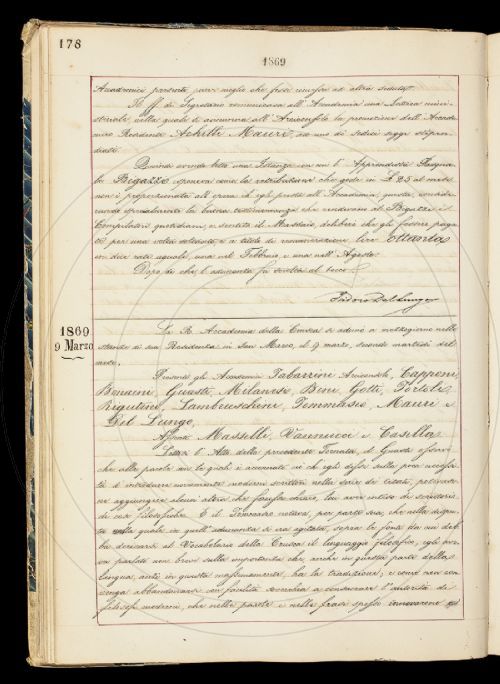 178
1869
Accademici presenti, parve meglio che fosse rimesso ad altra seduta.
Il ff. di Segretario comunicava all'Accademia una Lettera mini-
steriale, nella quale si annunzia all'Arciconsolo la promozione dell'Accade-
mico Residente Achille Mauri, ad uno di sedici seggi stipen-
diati.
Quindi avendo letto una Istanza con cui l'Apprendista Pasqua-
le Bigazzi esponeva come la retribuzione che gode in £ 25 al mese
non è proporzionata all'opera ch'egli presta all'Accademia, questa, conside-
rando specialmente la buona testimonianza che rendevano del Bigazzi i
Compilatori quotidiani, e sentito il Massaio, deliberò che gli fossero paga-
te per una volta soltanto, e a titolo di remunerazione, lire Ottanta
in due rate uguali, una nel Febbraio e una nell'Agosto.
Dopo di che l'adunanza fu sciolta al tocco.
Isidoro Del Lungo
1869
9 Marzo
La R. Accademia della Crusca si adunò a mezzogiorno nelle
stanze di sua Residenza in San Marco, il 9 marzo, secondo martedì del
mese.
Presenti gli Accademici Tabarrini Arciconsolo, Capponi,
Bonaini, Guasti, Milanesi, Bini, Gotti, Tortoli,
Rigutini, Lambruschini, Tommaseo, Mauri e
Del Lungo.
Assenti Masselli, Vannucci e Casella.
Letto l'Atto della precedente Tornata, il Guasti osservò
che alla parola in lui, ove è accennato ciò ch'egli disse sulla poca necessi-
tà d'introdurre nuovamente moderni scrittori nella serie dei citati, potevano-
ne aggiungere alcuni altri che
di cose filosofiche. E il Tommaseo notava, per parte sua, che nella dispu-
ta nella quale in quell'adunanza si era agitata, sopra le fonti da cui deb-
ba derivarsi al Vocabolario della Crusca il linguaggio filosofico, egli ave-
va parlato non breve sulla importanza che, anche in questa parte della
lingua, anzi in questa massimamente, ha la tradizione, e come non con-
venga abbandonarsi con facilità soverchia a consacrare l'autorità di
filosofi moderni, che nelle parole e nelle frasi spesso innovarono